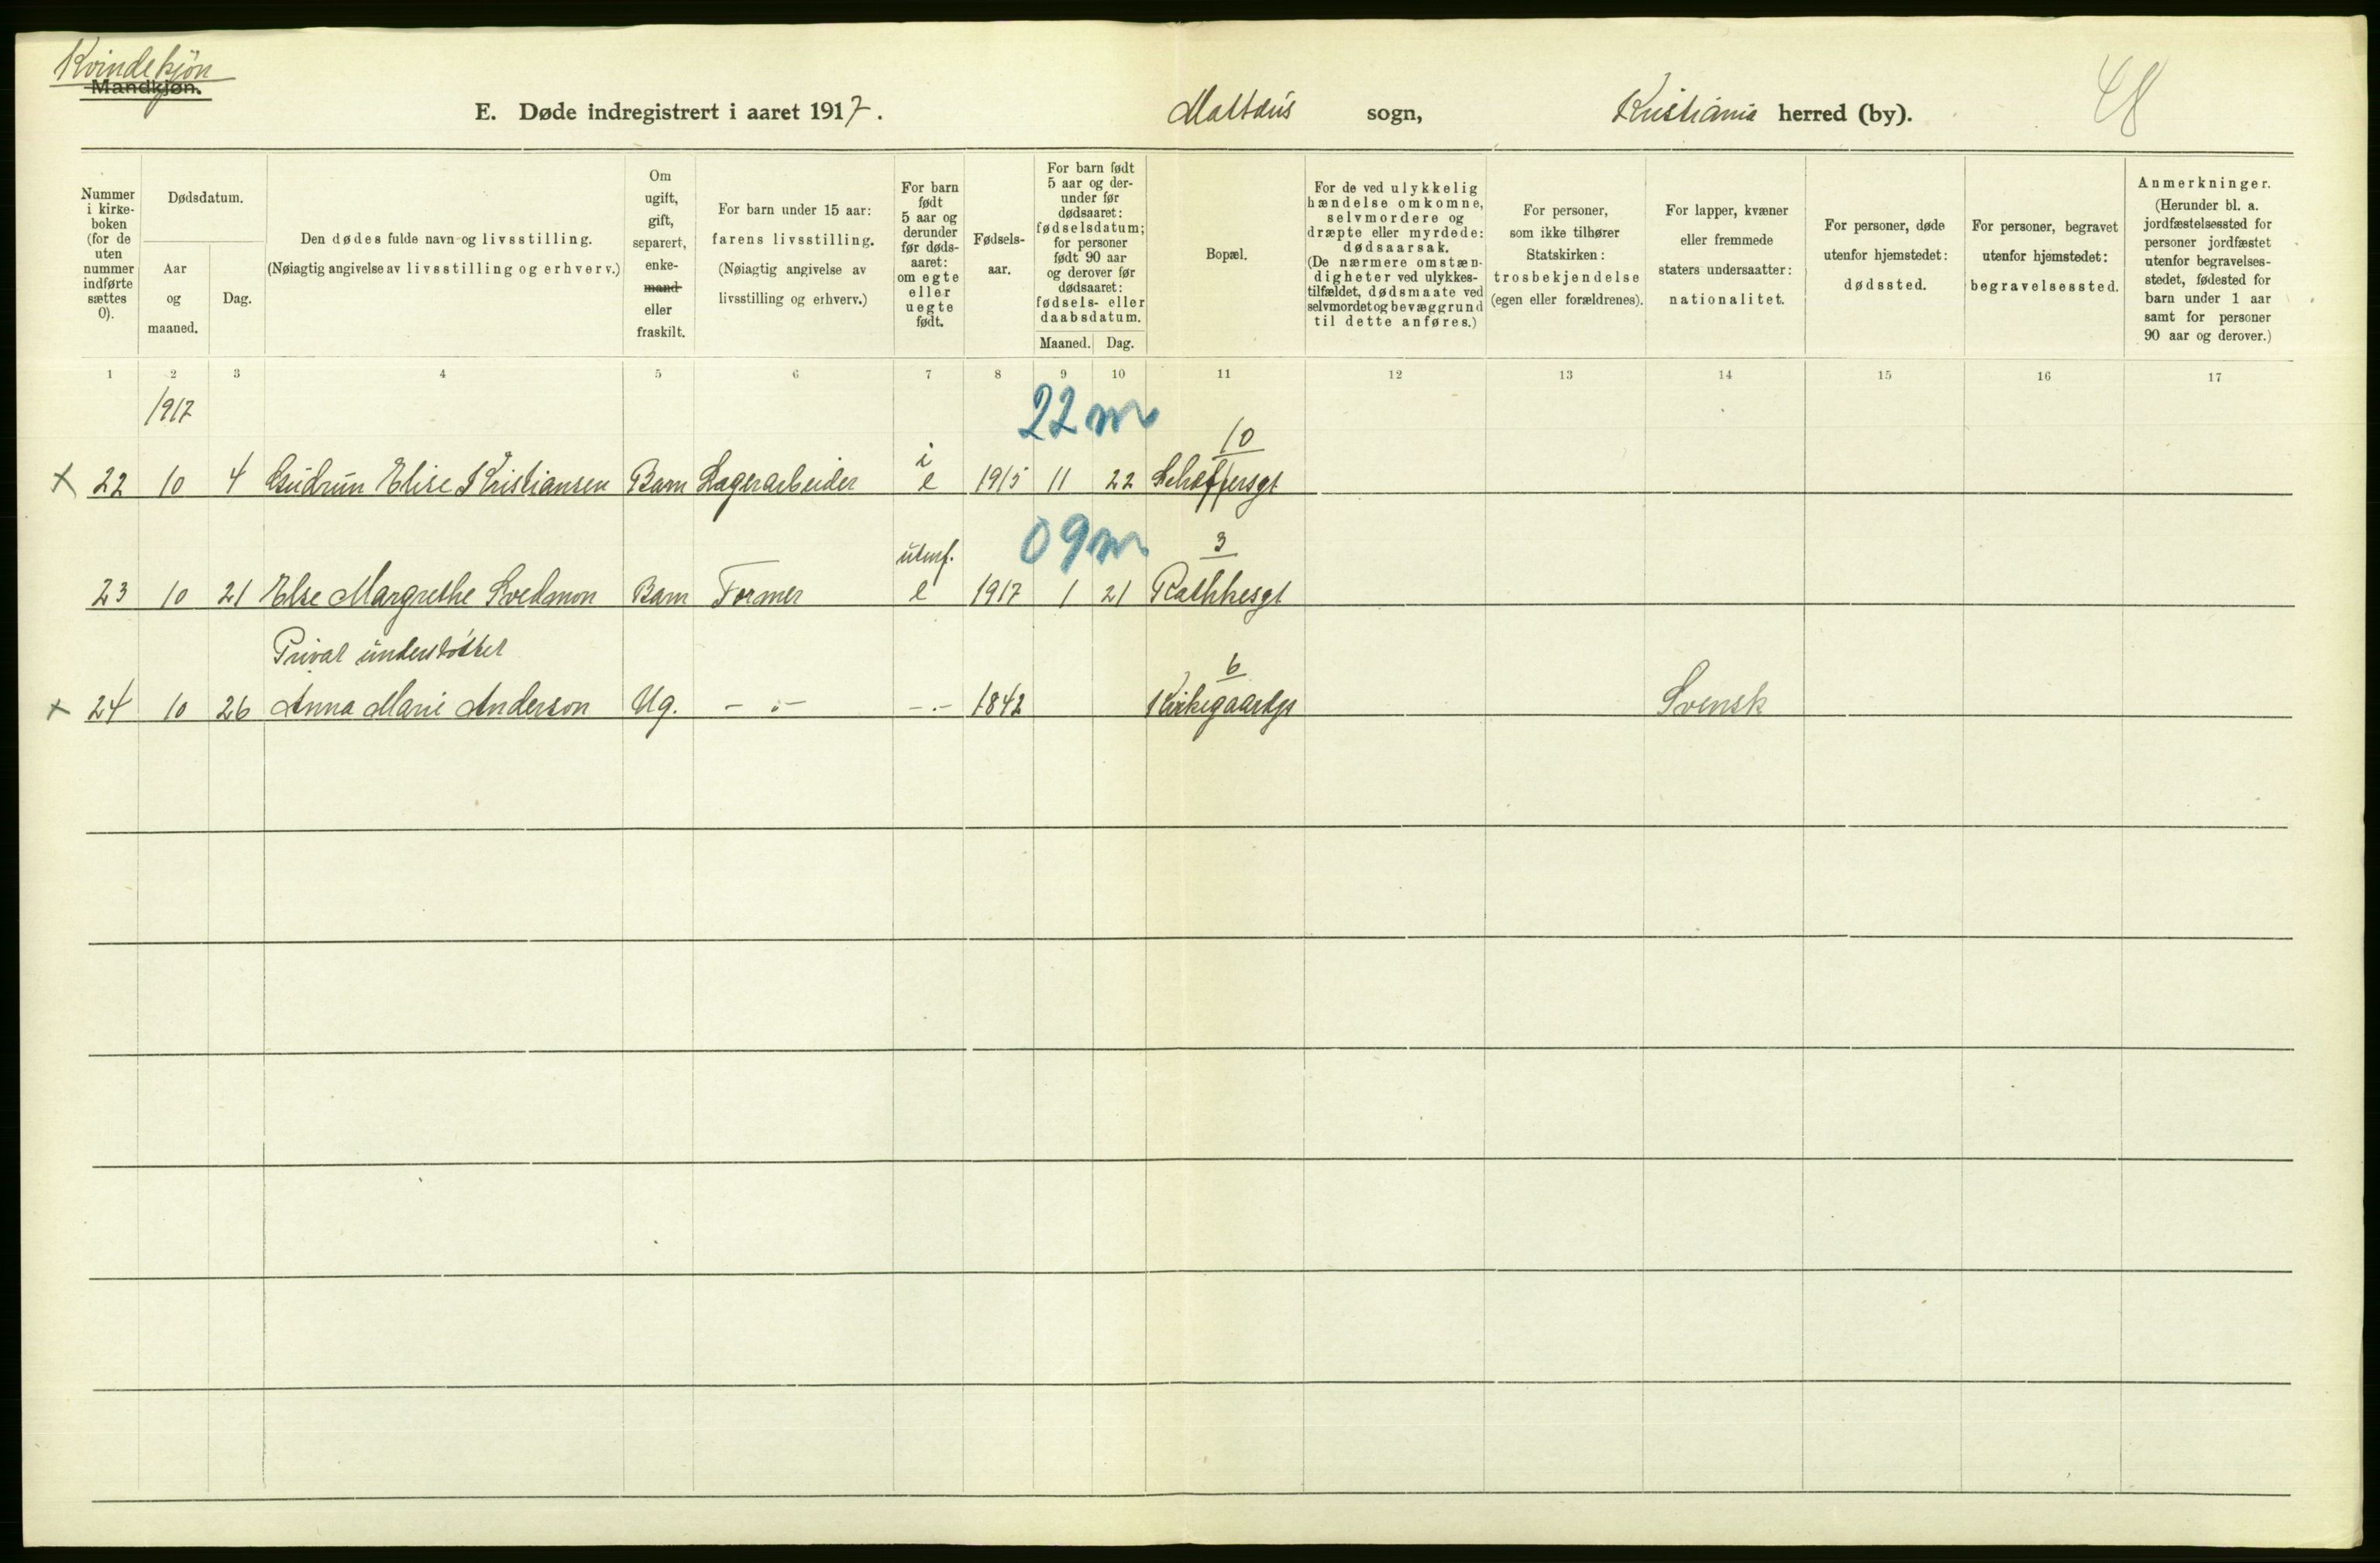 Kvindekjön
Mandkjøn.
E. Døde indregistrert i aaret 1917. Mattæus sogn, Kristiania herred (by). 48
Nummer i kirkeboken (for de uten nummer indførte sættes 0).
Dødsdatum.
Aar og maaned.
Dag.
Den dødes fulde navn og livsstilling.
(Nøiagtig angivelse av livsstilling og erhverv.)
Om ugift, gift, separert, enke-mand eller fraskilt.
For barn under 15 aar: farens livsstilling.
(Nøiagtig angivelse av livsstilling og erhverv.)
For barn født 5 aar og derunder før dødsaaret: om egte eller uegte født.
Fødselsaar.
For barn født 5 aar og derunder før dødsaaret: fødselsdatum; for personer født 90 aar og derover før dødsaaret: fødsels- eller daabsdatum.
Maaned. Dag.
Bopæl.
For de ved ulykkelig hændelse omkomne, selvmordere og dræpte eller myrdede: dødsaarsak.
(De nærmere omstændigheter ved ulykkestilfældet, dødsmaate ved selvmordet og bevæggrund til dette anføres.)
For personer, som ikke tilhører Statskirken: trosbekjendelse (egen eller forældrenes).
For lapper, kvæner eller fremmede staters undersaatter: nationalitet.
For personer, døde utenfor hjemstedet: dødssted.
For personer, begravet utenfor hjemstedet: begravelsessted.
Anmerkninger.
(Herunder bl. a. jordfæstelsessted for personer jordfæstet utenfor begravelsesstedet, fødested for barn under 1 aar samt for personer 90 aar og derover.)
1 2 3 4 5 6 7 8 9 10 11 12 13 14 15 16 17
1917 22 m
i 10
x 22 10 4 Gudrun Elise Kristiansen Barn Lagerarbeider e 1915 11 22 Scheffersgt
utenf. 09 m 3
23 10 21 Else Margrethe Svedmon Barn Former e 1917 1 21 Rathkesgt
Privat understöttet 6
x 24 10 26 Anna Marie Anderson Ug. - . - - . - 1842 Kirkegaardsgt Svensk